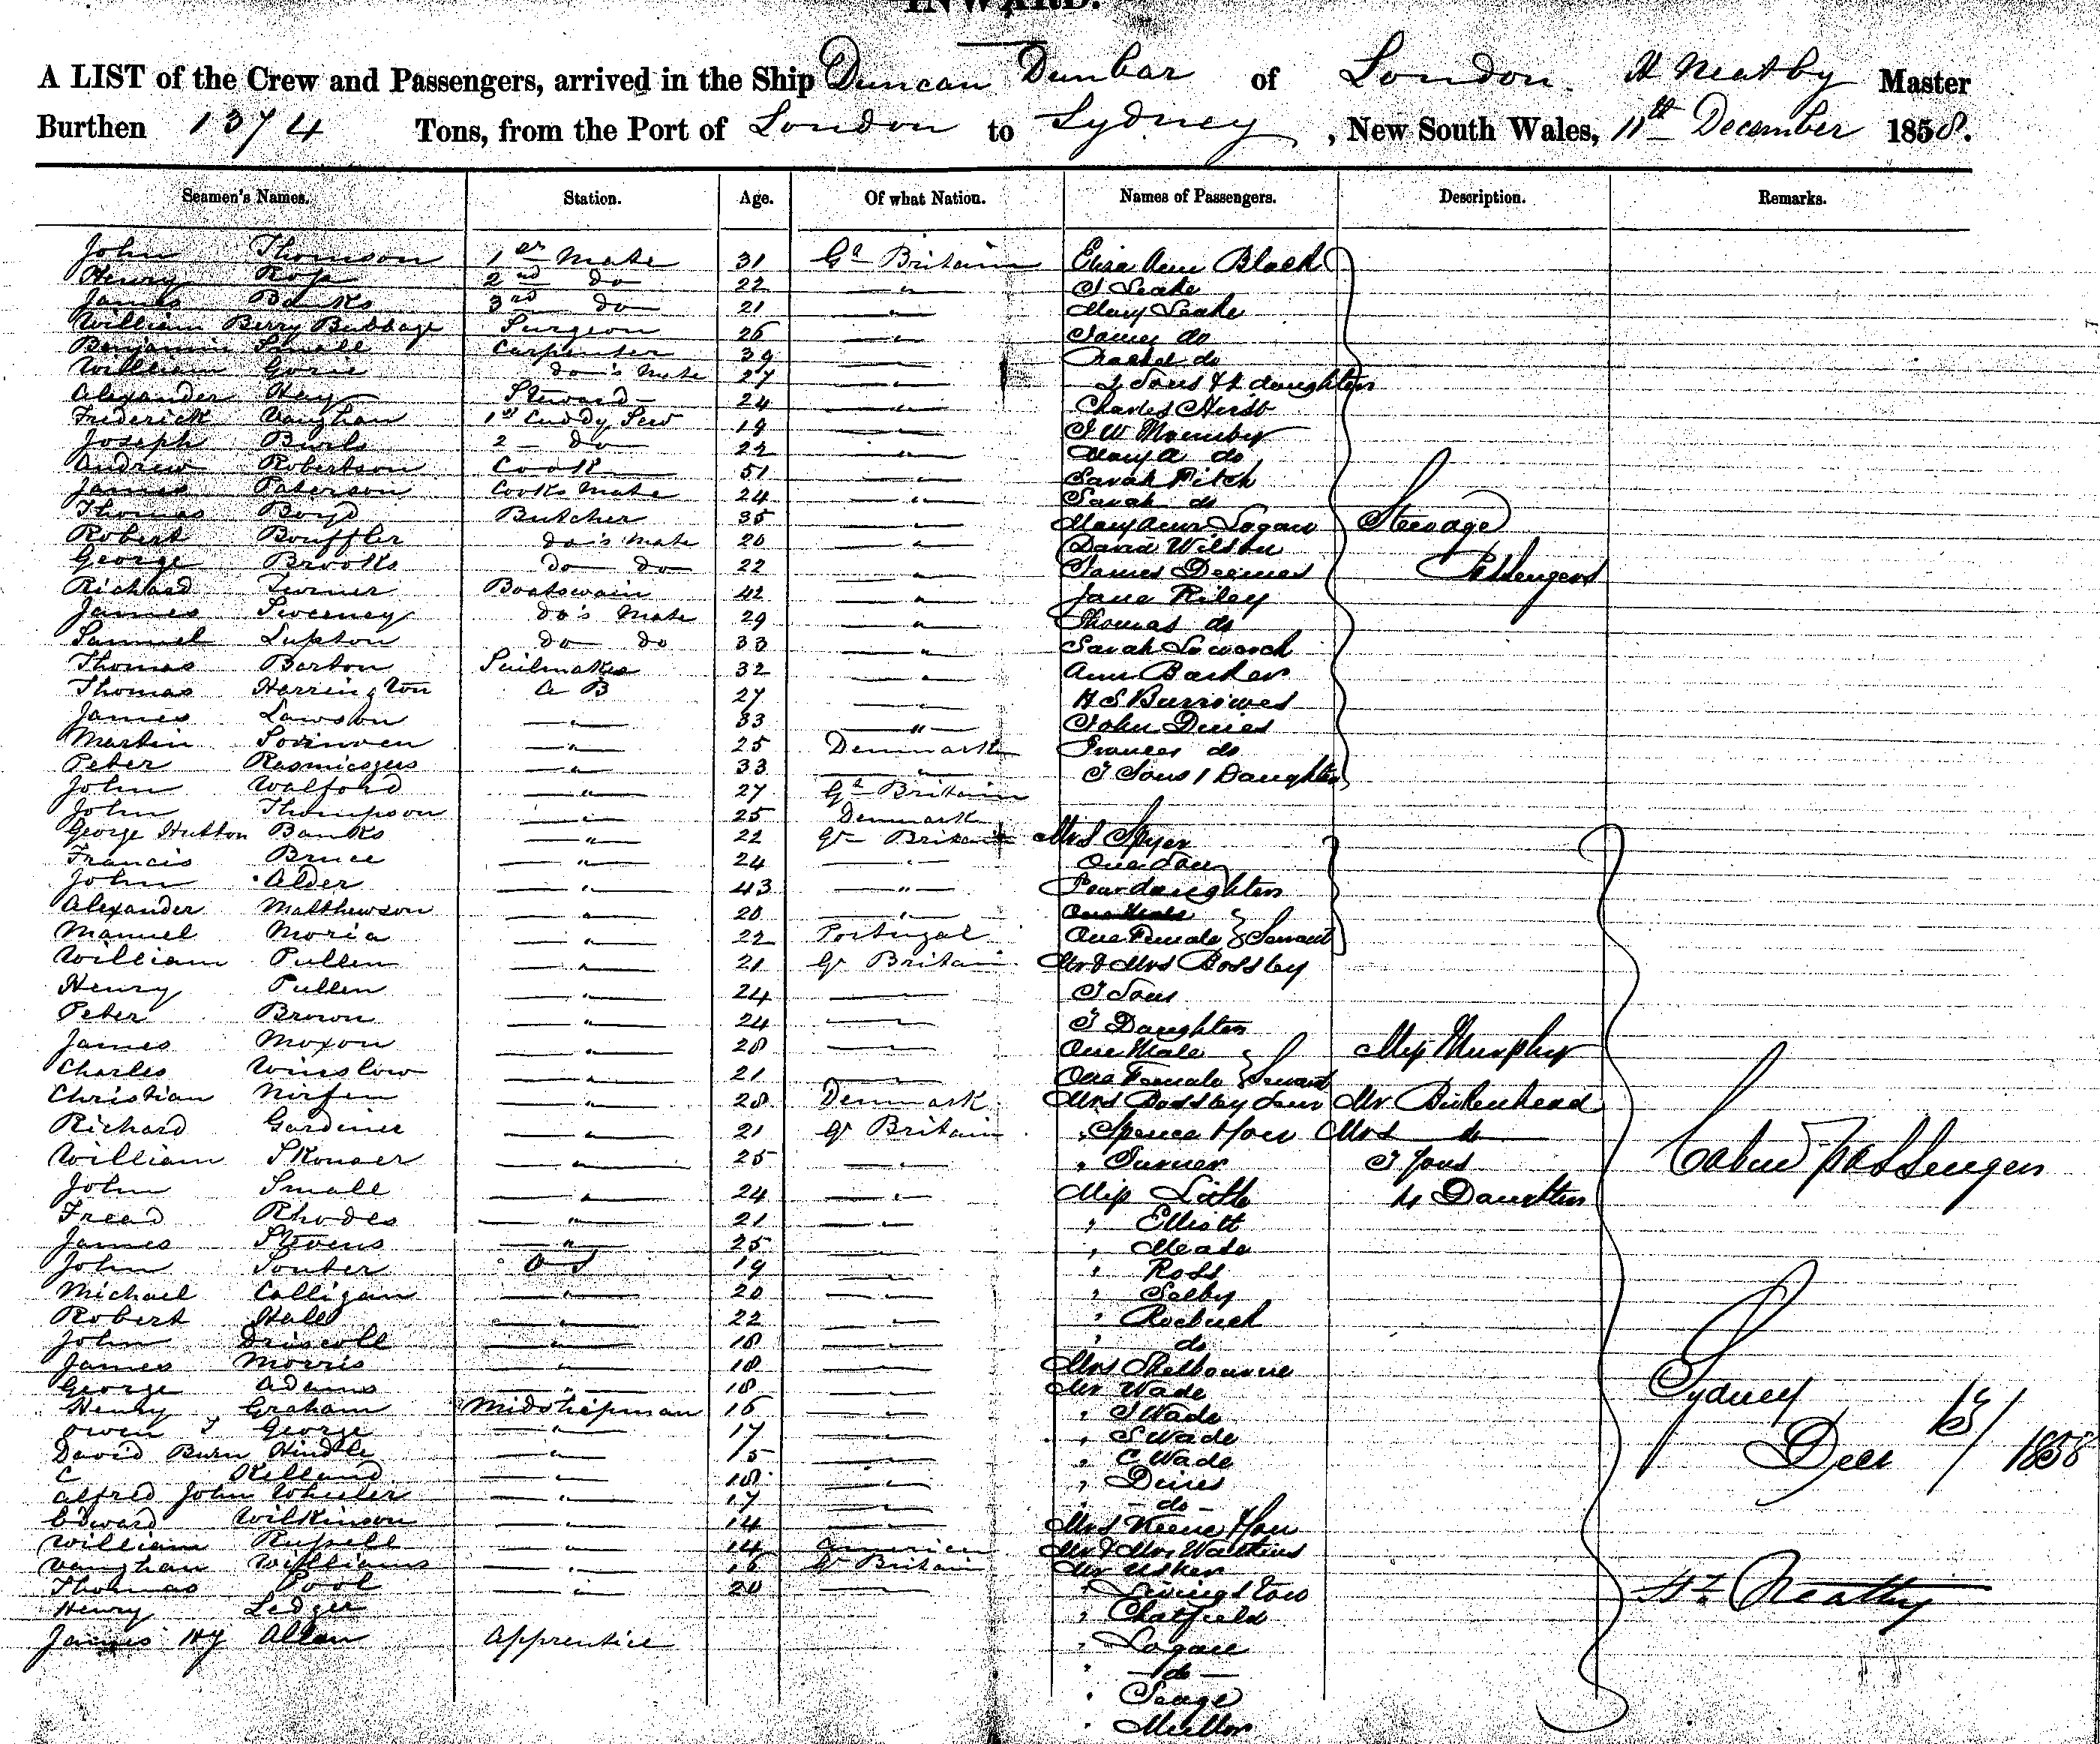 INWARD.
A LIST of the Crew and Passengers, arrived in the Ship Duncan Dunbar of London H Neatby Master
Burthen 1374 Tons, from the Port of London to Sydney, New South Wales, 11th December 1858.
Seamen's Names. Station. Age. Of what Nation. Names of Passengers. Description. Remarks.
John Thomson 1st Mate 31 Gt Britain Eliza Ann Black
Henry 2nd do 22 " J Leake
James Banks 3rd do 21 " Mary Leake
William Berry Bubbage Surgeon 26 " James do
Benjamin Small Carpenter 39 " Rachel do
William do's Mate 27 " 2 Sons & 2 daughters
Alexander Hay Steward 24 " Charles Hirst
Frederick Vaughan 1st Cuddy Stew 19 " J W
Joseph 2 do 22 " Mary A do
Andrew Robertson Cook 51 " Sarah Fitch
James Paterson Cooks Mate 24 " Sarah do
Thomas Boyd Butcher 35 " Mary Ann Logan Steerage
Robert Bouffler do's Mate 20 " David Wilson
George Brooks do do 22 " James Passengers
Richard Turner Boatswain 42 " Jane Riley
James Sweeney do's Mate 29 " Thomas do
Samuel Lupton do do 33 " Sarah
Thomas Barton Sailmaker 32 " Ann Barker
Thomas Harrington A B 27 " H S Burrowes
James Lawson " 33 " John Dines
Martin " 25 Denmark Frances do
Peter " 33 " 3 Sons 1 Daughter
John Walford " 27 Gt Britain
John Thompson " 25 Denmark
George Hutton Banks " 22 Gt Britain Mrs Spyer
Francis Bruce " 24 " One Son
John Alder " 43 " Four daughters
Alexander Matthewson " 20 "
Manuel Moria " 22 Portugal One Female Servant
William Pullen " 21 Gt Britain Mr & Mrs Bossley
Henry Pullen " 24 " 3 Sons
Peter Brown " 24 " 3 Daughters
James Moxon " 28 " One Male Miss Murphy
Charles Winslow " 21 " One Female Servant
Christian " 28 Denmark Mrs Bossley Senr Mr Birkenhead
Richard Gardiner " 21 Gt Britain " Spence & Son Mrs do
William " 25 " " Turner 3 Sons Cabin passengers
John Small " 24 " Miss Little 4 Daughters
Fread Rhodes " 21 " " Elliott
James Stevens " 25 " " Meade
John Souter O S 19 " " Ross
Michael Calligan " 20 " " Selby
Robert Hall " 22 " " Roebuck
John Driscoll " 18 " " do
James Morris " 18 " Mrs Shelbourne
George Adams " 18 " Mr Wade Sydney
Henry Graham Midshipman 16 " " J Wade
Owen J George " 17 " " S Wade
David Burn Hindle " 15 " " C Wade Decr 13/1858
C Kelland " 18 " " Dines
Alfred John Wheeler " 17 " " do
Edward Wilkinson " 14 " Mrs Keene & Son
William Russell " 14 American Mr & Mrs Watkins
Vaughan Williams " 16 Gt Britain Mr Usher
Thomas Pool " 20 " " Livingstow Hy Neatby
Henry Ledger " Chatfield
James Hy Allan Apprentice " Logan
" do
" Savage
" Muller